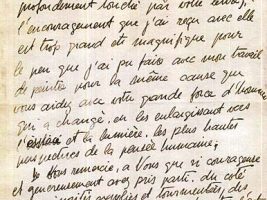 profondément touché par votre
l'encouragement que j'ai reçu avec elle
est trop grand et magnifique pour
le peu que j'ai pu faire avec mon travail
de peintre pour la même cause que
vous aidez avec votre grande force d'homme
qui a changé, en les enlargissant vers
et la lumière, les plus hautes
de la pensée humaine,
Je Vous remercie, a Vous que si courageuse
et généreusement avez pris parti, du coté
et tourmentés, des